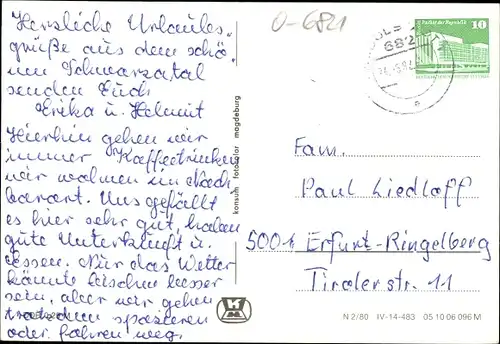 Herzliche Urlaubs-
grüße aus dem schö-
nen Schwarzatal
senden Euch
Erika u. Helmut
Hierhin gehen wir
immer Kaffeetrinken
wir wohnen im Nach
barort. Uns gefällt
es hier sehr gut, haben
gute Unterkunft u.
Essen. Nur das Wetter
könnte bischen besser
sein, aber wir gehen
trotzdem spazieren
oder fahren weg.
konsum fotocolor magdeburg
0-6821
682
10
Fam.
Paul Liedloff
5001 Erfurt-Ringelberg
Tirolerstr. 11
N 2/80 IV-14-483 05 10 06 096 M